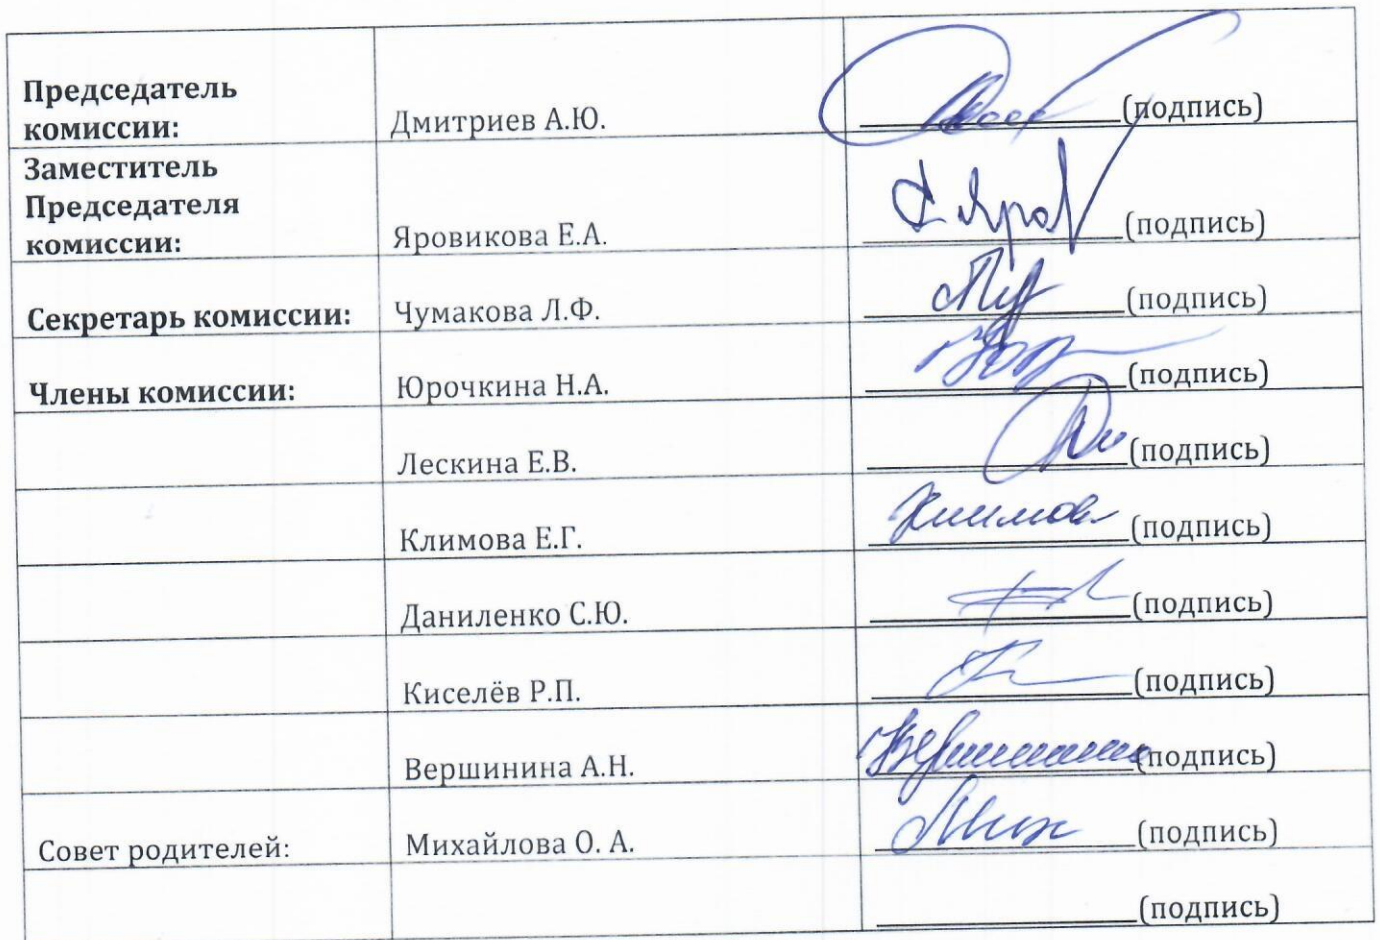 Председатель
комиссии:
Дмитриев А.Ю.
(подпись)
Заместитель
Председателя
комиссии:
Яровикова Е.А.
(подпись)
Секретарь комиссии:
Чумакова Л.Ф.
(подпись)
Члены комиссии:
Юрочкина Н.А.
(подпись)
Лескина Е.В.
(подпись)
Климова Е.Г.
(подпись)
Даниленко С.Ю.
(подпись)
Киселёв Р.П.
(подпись)
Вершинина А.Н.
(подпись)
Совет родителей:
Михайлова О. А.
(подпись)
(подпись)